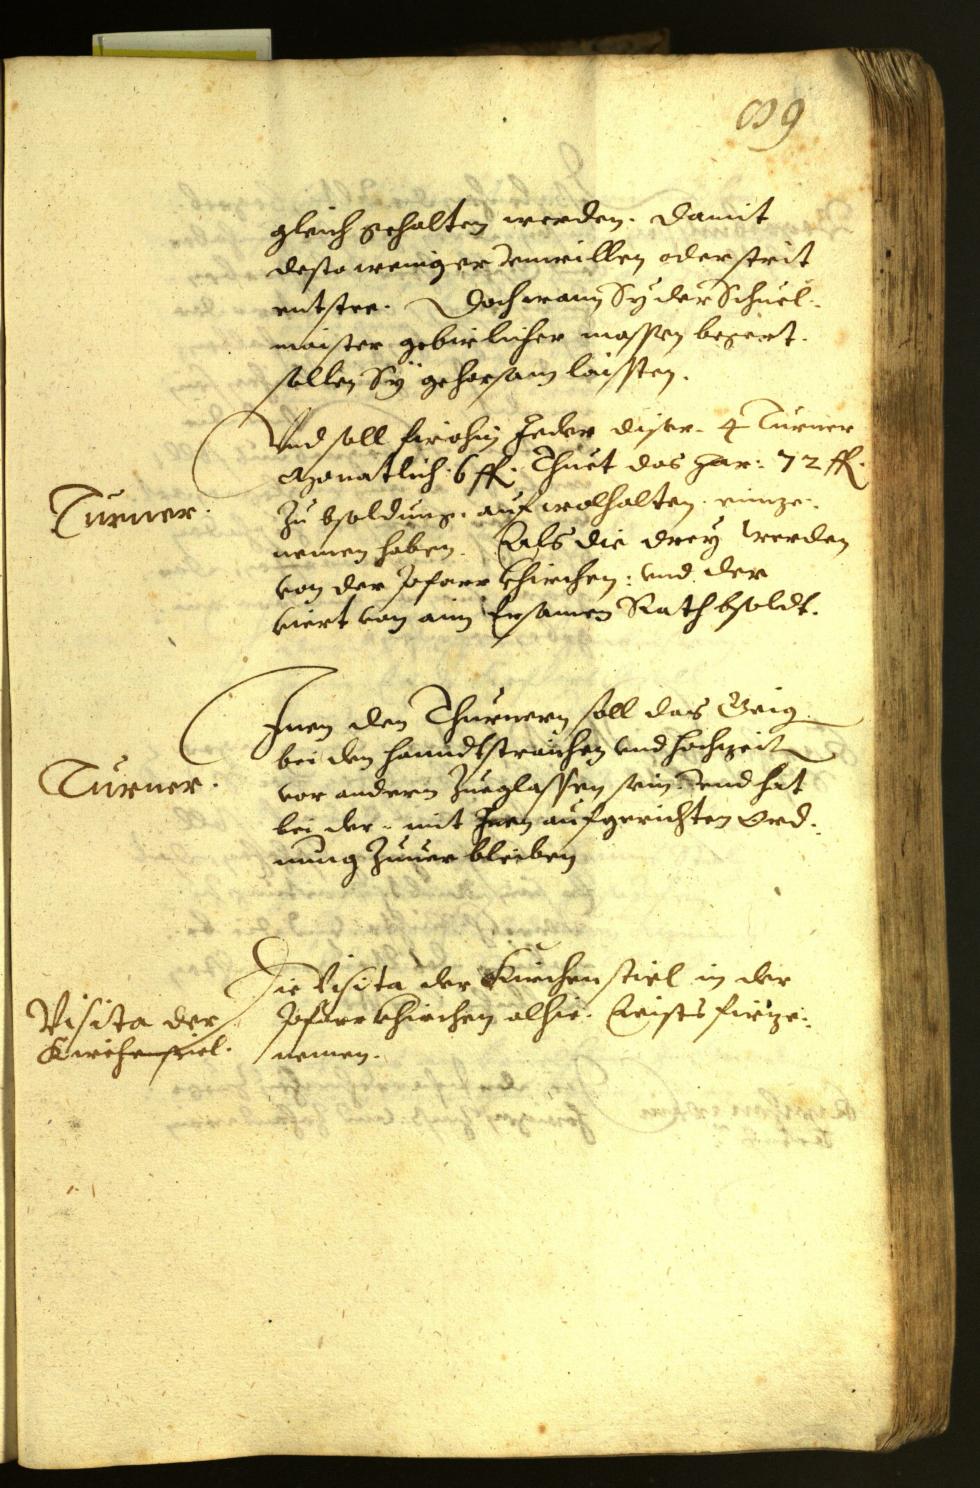 89
gleich gehalten werden. Damit
desto weniger Unwillen oder strit
entstee. Doch wann Sy der Schuel-
maister gebirlicher massen begert.
sollen Sy gehorsam laissten.
Turner.
Und soll firohin Jeder diser 4 Turner
Monatlich 6 fl. Thuet das Jar: 72 fl.
Zu bsoldung. auf wolhalten. einze-
nemen haben. Als die drey werden
von der Pfarrkhirchen: und der
viert von aim Ersamen Rath bsoldt.
Turner.
Inen den Thurnern soll das
bei den handtstraichen und hochzeit
vor andern Zuegelassen sein. Und hat
bei der mit Inen aufgerichten Ord-
nung Zuuerbleiben
Visita der
Kirchenstiel.
Die Visita der Kirchenstiel in der
Pfarrkhirchen alhie. Ists firze-
nemen.